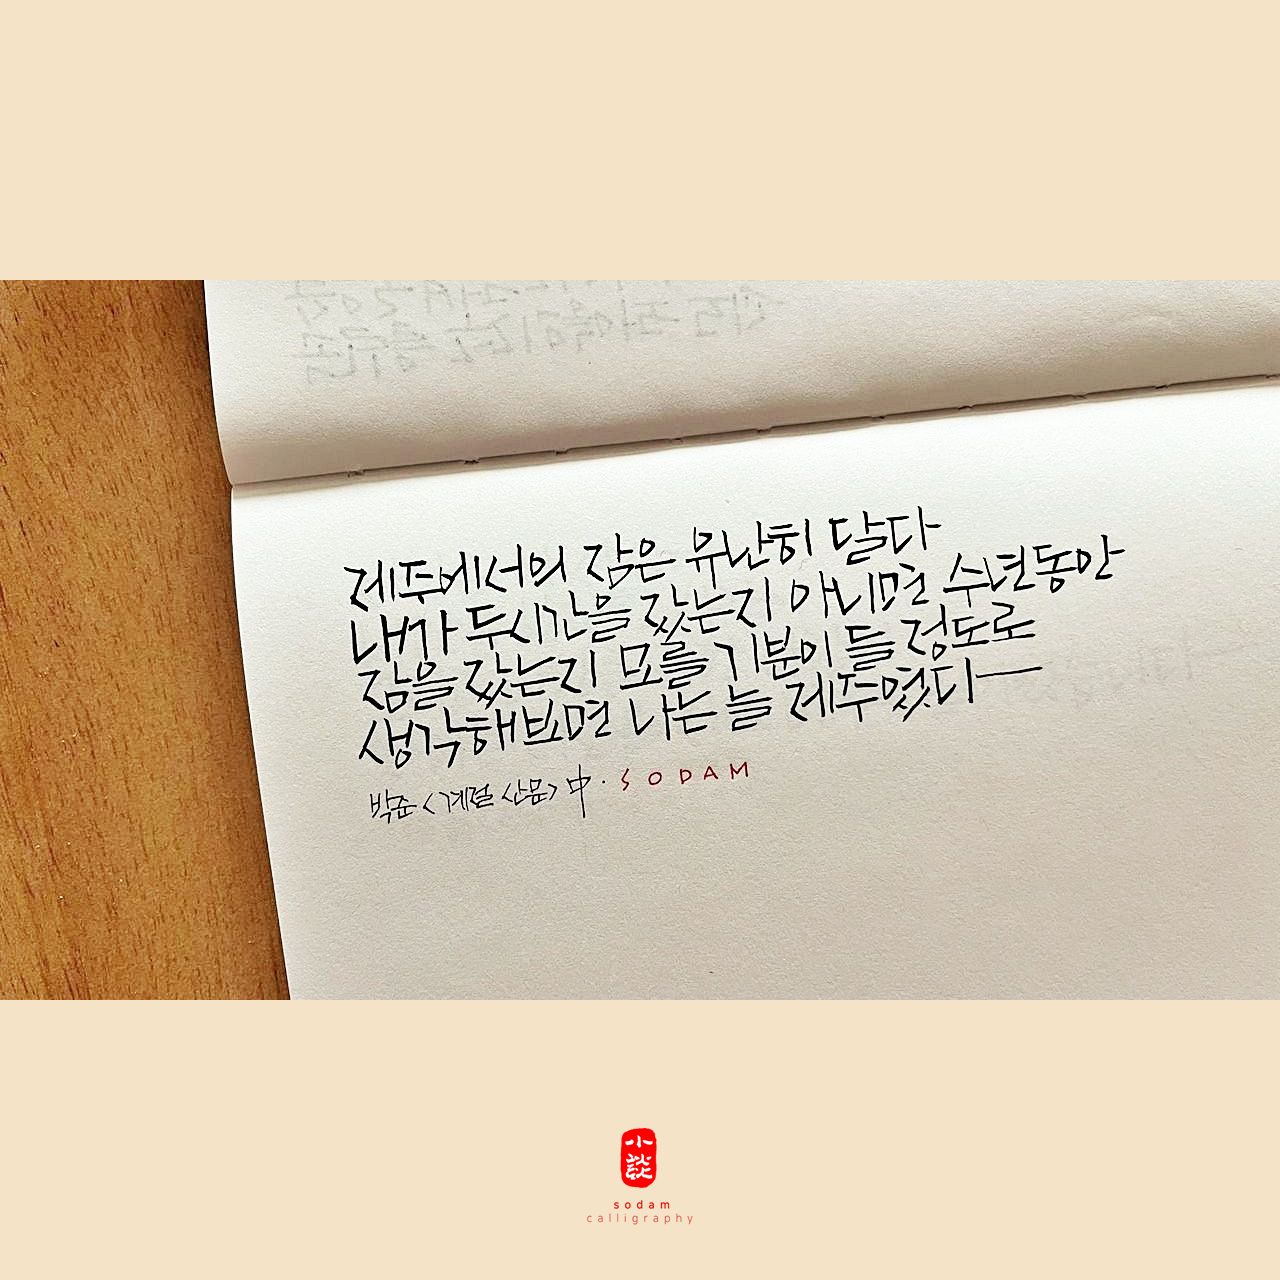 제주에서의 잠은 유난히 달다
내가 두시간을 잤는지 아니면 수년동안
잠을 잤는지 모를 기분이 들 정도로
생각해보면 나는 늘 제주였다
박준 <계절 산문> 中 · SODAM
小談
sodam
calligraphy